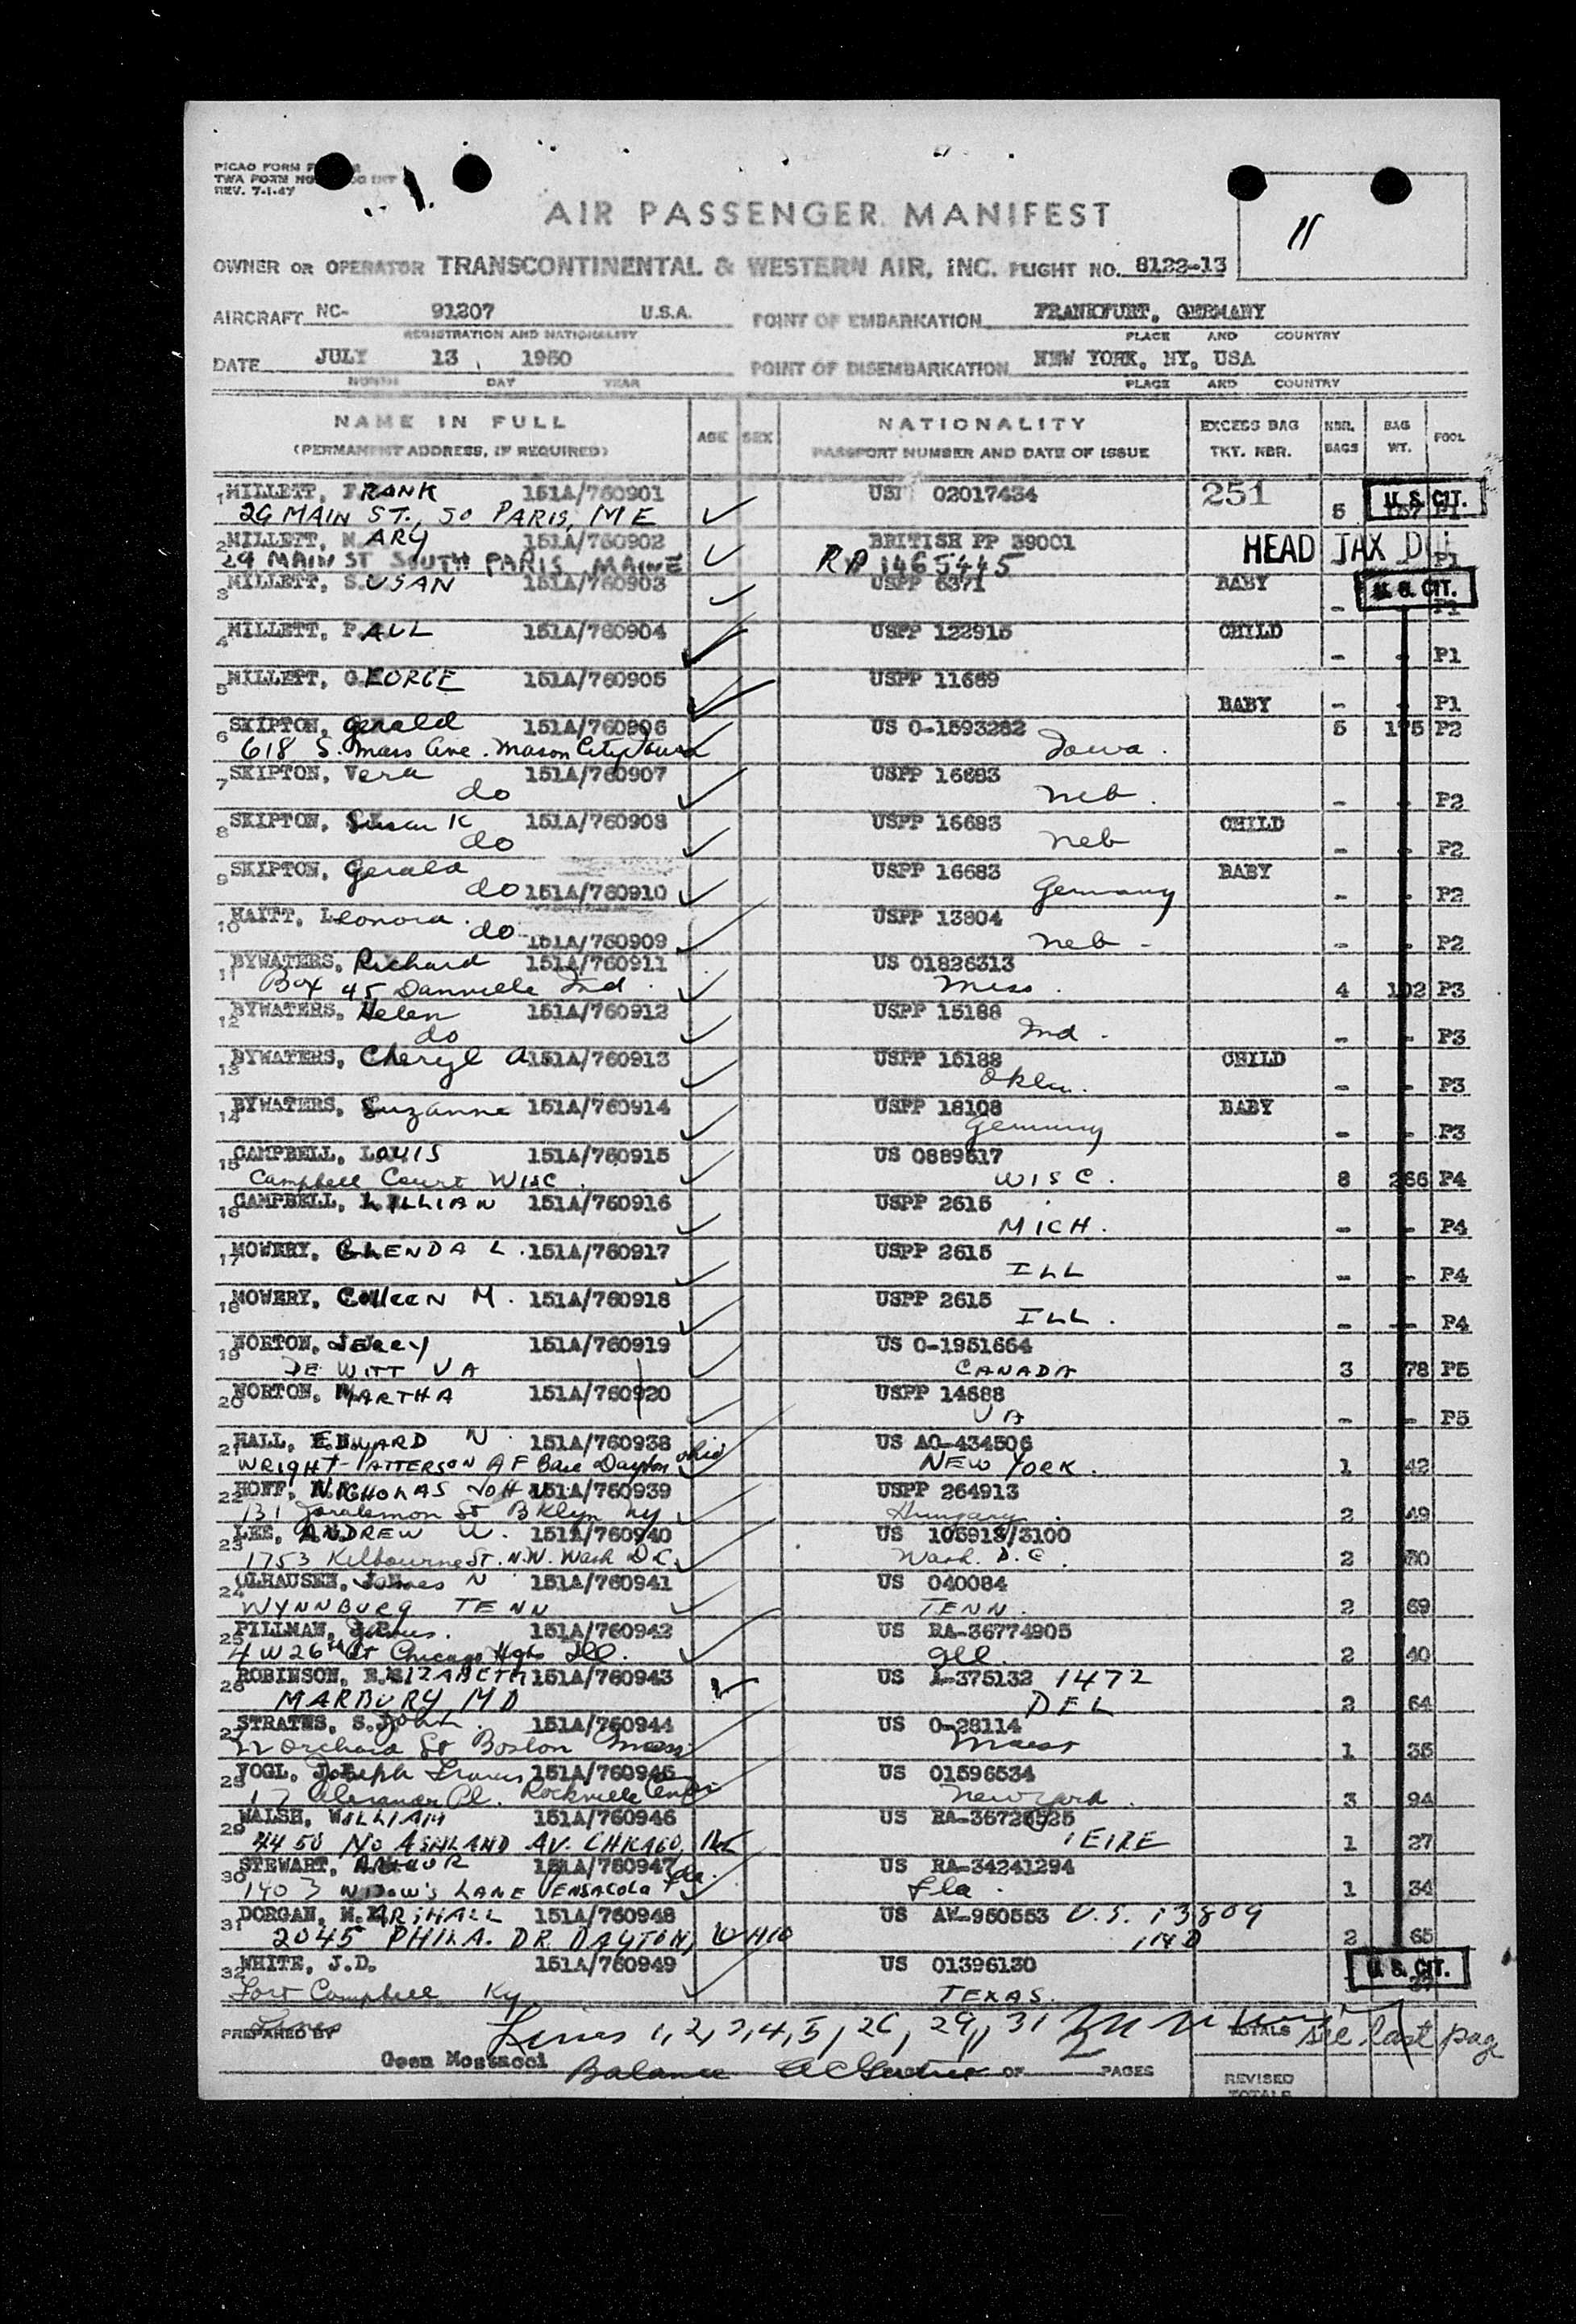 PICAO FORM
TWA FORM NO
REV. 7-1-47
11
AIR PASSENGER MANIFEST
OWNER OR OPERATOR TRANSCONTINENTAL & WESTERN AIR, INC. FLIGHT NO. 8122-13
AIRCRAFT NC- 91207 U.S.A. POINT OF EMBARKATION FRANKFURT, GERMANY
REGISTRATION AND NATIONALITY PLACE AND COUNTRY
DATE JULY 13, 1950 POINT OF DISEMBARKATION NEW YORK, NY, USA
MONTH DAY YEAR PLACE AND COUNTRY
NAME IN FULL AGE SEX NATIONALITY EXCESS BAG NBR. BAG POOL
(PERMANENT ADDRESS, IF REQUIRED) PASSPORT NUMBER AND DATE OF ISSUE TKT. NBR. BAGS WT.
1 MILLETT, FRANK 151A/760901 US 02017434 251 5 U.S. CIT. P1
MAIN ST., SO PARIS, ME
2 MILLETT, MARY 151A/760902 BRITISH PP 39001 HEAD TAX D P1
29 MAIN ST SOUTH PARIS, MAINE RP 1465445
3 MILLETT, SUSAN 151A/760903 USPP 6371 BABY - U.S. CIT. P1
4 MILLETT, PAUL 151A/760904 USPP 122915 CHILD - - P1
5 MILLETT, GEORGE 151A/760905 USPP 11669 BABY - - P1
6 SKIPTON, Gerald 151A/760906 US O-1593282 5 175 P2
618 S. Mass Ave. Mason City Iowa Iowa.
7 SKIPTON, Vera 151A/760907 USPP 16683 - - P2
do Neb.
8 SKIPTON, Susan K 151A/760908 USPP 16683 CHILD - - P2
do Neb
9 SKIPTON, Gerald USPP 16683 BABY - - P2
do 151A/760910 Germany
10 HAITT, Leonora. USPP 13804 - - P2
do 151A/760909 Neb -
11 BYWATERS, Richard 151A/760911 US 01826313 4 102 P3
Box 45 Danville Ind. Miss.
12 BYWATERS, Helen 151A/760912 USPP 15188 - - P3
do Ind.
13 BYWATERS, Cheryl A 151A/760913 USPP 15188 CHILD - - P3
Okla.
14 BYWATERS, Suzanne 151A/760914 USPP 18108 BABY - - P3
Germany
15 CAMPBELL, LOUIS 151A/760915 US 0889617 8 266 P4
Campbell Court WISC. WISC.
16 CAMPBELL, LILLIAN 151A/760916 USPP 2615 - - P4
MICH.
17 MOWERY, GLENDA L. 151A/760917 USPP 2615 - - P4
ILL
18 MOWERY, COLLEEN M. 151A/760918 USPP 2615 - - P4
ILL.
19 NORTON, JERRY 151A/760919 US O-1951664 3 78 P5
DE WITT VA CANADA
20 NORTON, MARTHA 151A/760920 USPP 14688 - - P5
VA
21 HALL, EDWARD N. 151A/760938 US AO-434506 1 42
WRIGHT-PATTERSON AF Base Dayton Ohio NEW YORK.
22 HOFF, NICHOLAS JOHN 151A/760939 USPP 264913 2 49
131 Joralemon St Bklyn NY Hungary.
23 LEE, ANDREW U. 151A/760940 US 105918/3100 2 80
1753 Kilbourne St. N.W. Wash D.C. Wash. D.C.
24 OLHAUSEN, James N 151A/760941 US 040084 2 69
WYNNBURG TENN TENN.
25 PILLMAN, James. 151A/760942 US RA-36774905 2 40
4 W 26th St Chicago Hgts Ill. Ill.
26 ROBINSON, ELIZABETH 151A/760943 US L-375132 1472 2 64
MARBURY MD DEL
27 STRATES, S. John. 151A/760944 US O-28114 1 35
Orchard St Boston Mass
28 VOGL, Joseph 151A/760945 US 01596534 3 94
17 Pl. Rockville New York.
29 WALSH, WILLIAM 151A/760946 US RA-36726525 1 27
4450 NO ASHLAND AV. CHICAGO, ILL EIRE
30 STEWART, ARTHUR 151A/760947 US RA-34241294 1 34
1403 LANE PENSACOLA Fla. Fla.
31 DORGAN, MARSHALL 151A/760948 US AW-950553 U.S. 13809 2 65
2045 PHILA. DR. DAYTON, OHIO IND
32 WHITE, J.D. 151A/760949 US 01396130 U.S. CIT.
Fort Campbell Ky TEXAS.
PREPARED BY Lines 1, 2, 3, 4, 5, 26, 29, 31 TOTALS see last page
Geen Mostacci Balance OF PAGES
REVISED
TOTALS